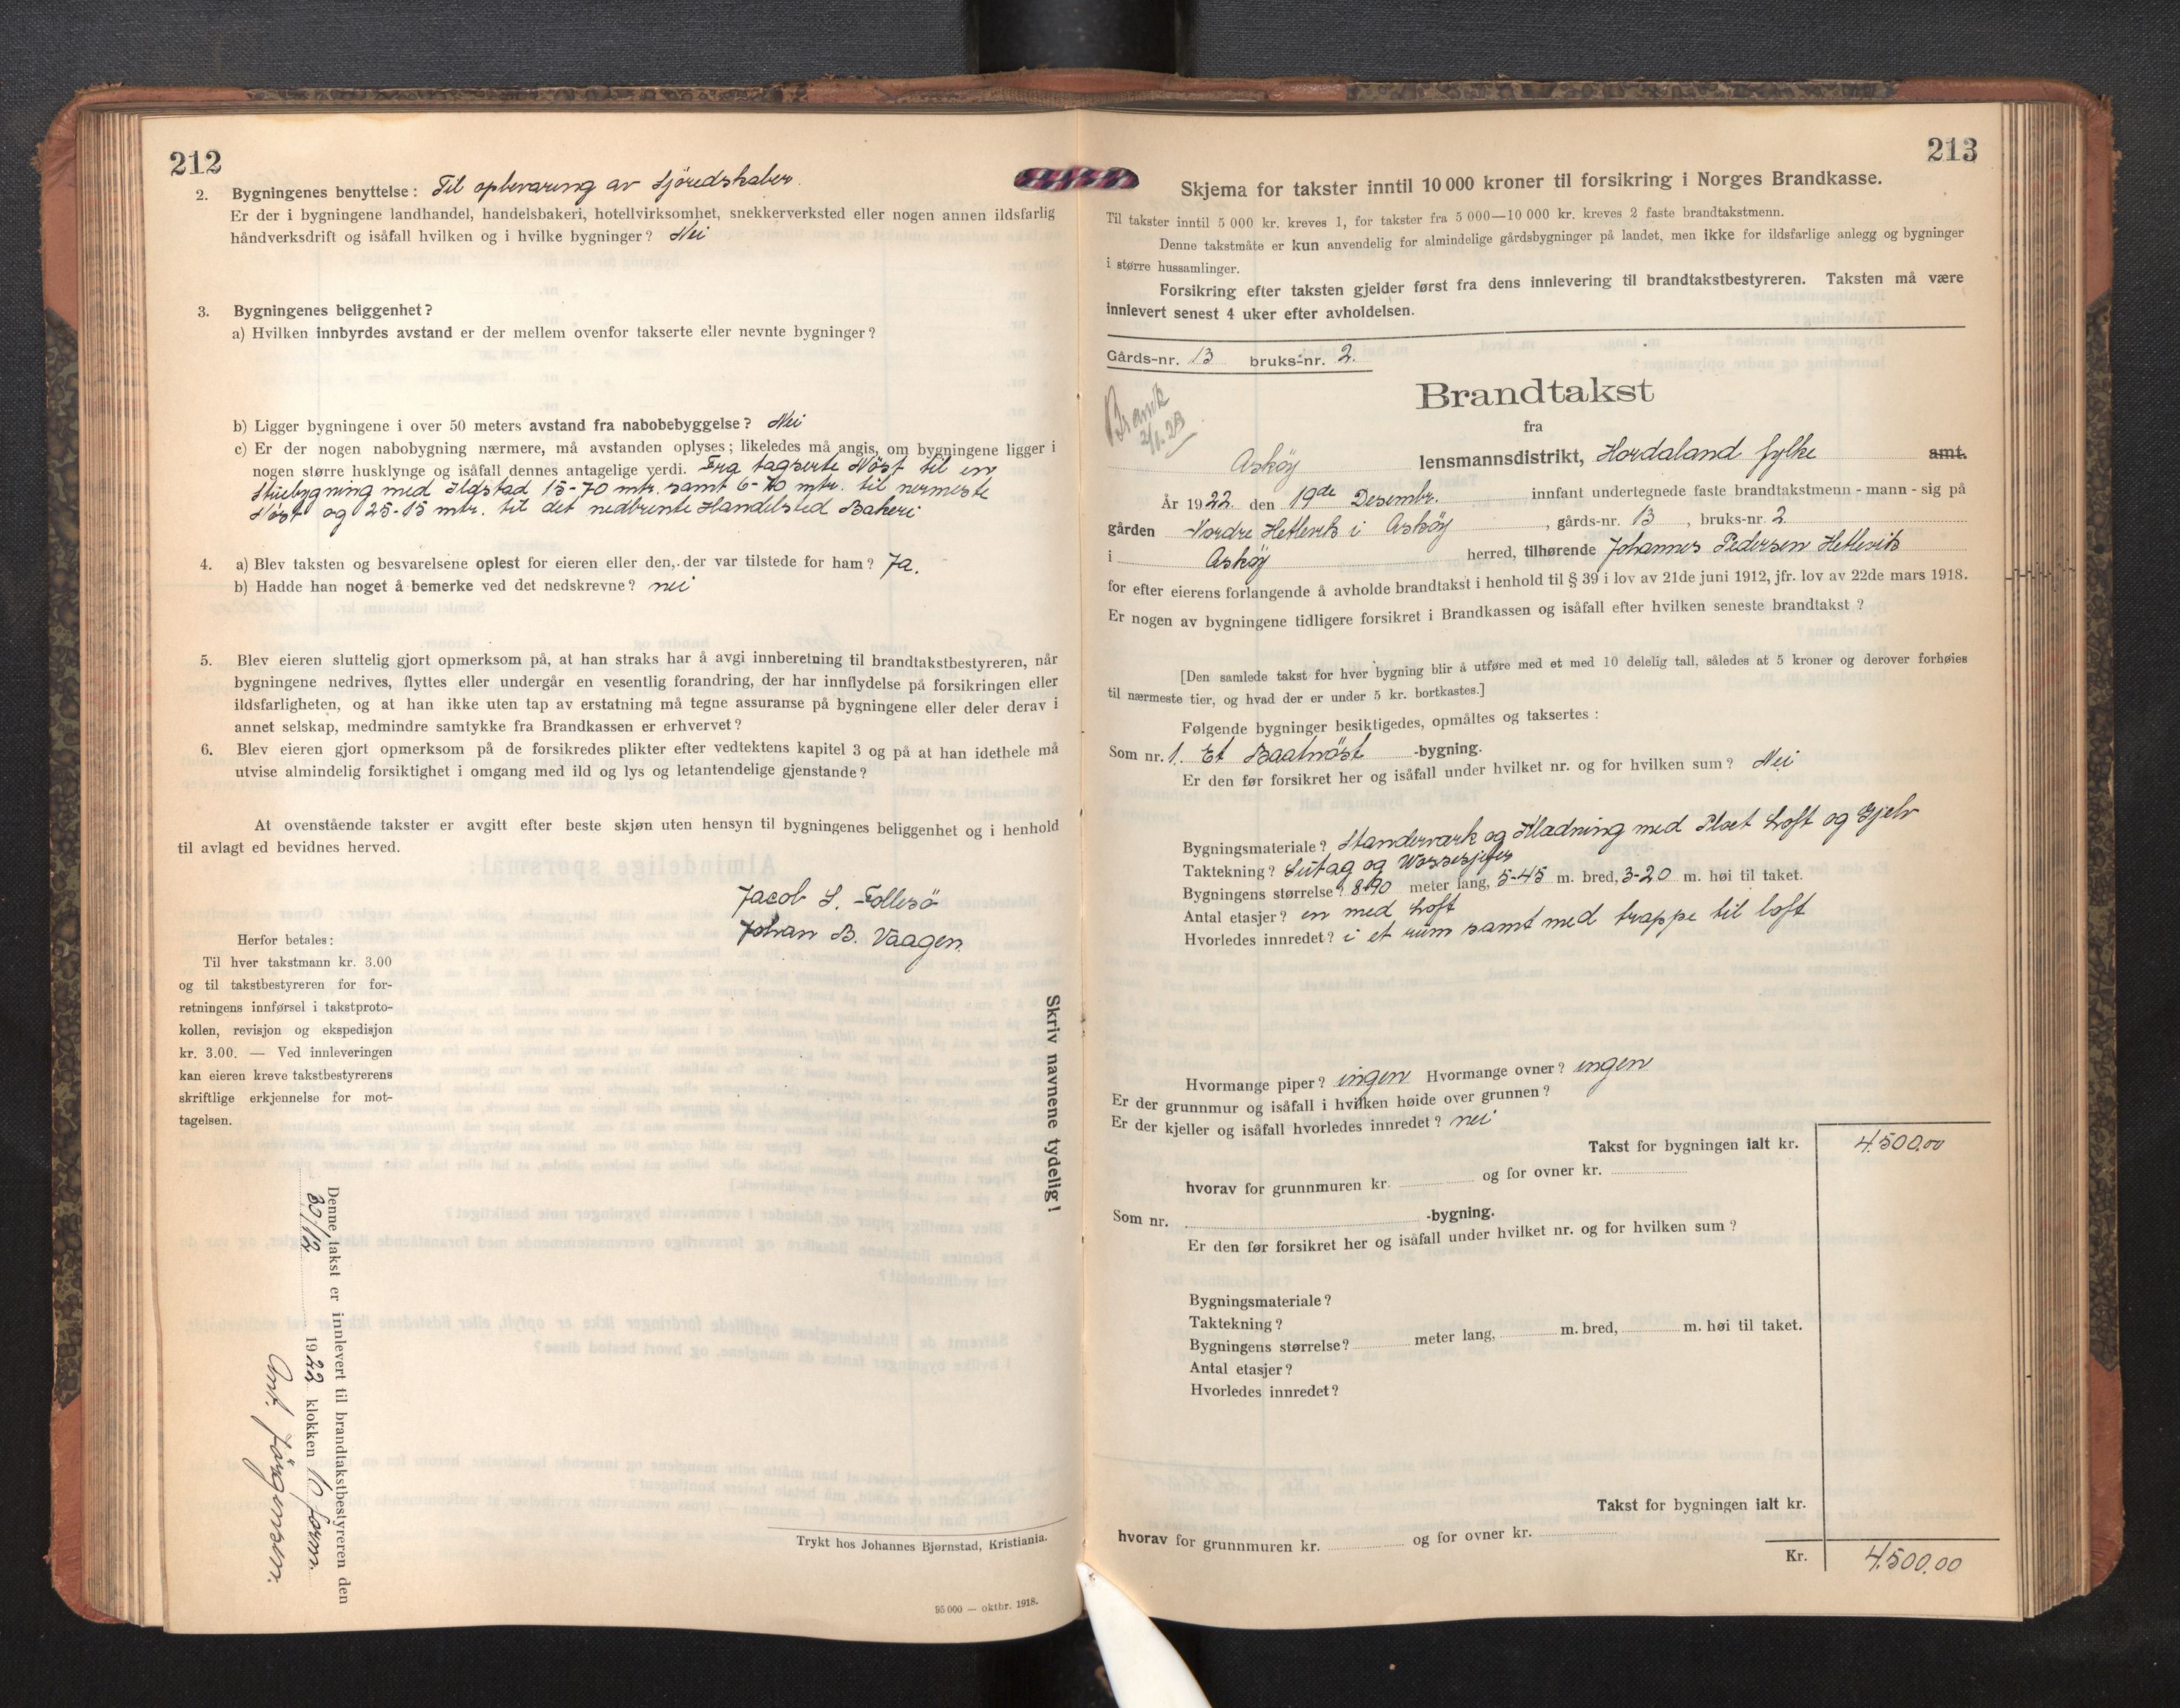 212
2. Bygningenes benyttelse: Til opbevaring av Sjöredskaber.
Er der i bygningene landhandel, handelsbakeri, hotellvirksomhet, snekkerverksted eller nogen annen ildsfarlig
håndverksdrift og isåfall hvilken og i hvilke bygninger? Nei
3. Bygningenes beliggenhet?
a) Hvilken innbyrdes avstand er der mellem ovenfor takserte eller nevnte bygninger?
b) Ligger bygningene i over 50 meters avstand fra nabobebyggelse? Nei
c) Er der nogen nabobygning nærmere, må avstanden oplyses; likeledes må angis, om bygningene ligger i
nogen større husklynge og isåfall dennes antagelige verdi. Fra tagserte Nöst til en
Stuebygning med Ildstad 15-70 mtr. samt 6-70 mtr. til nermeste
Nöst og 25-15 mtr. til det nedbrente Handelsted Bakeri
4. a) Blev taksten og besvarelsene oplest for eieren eller den, der var tilstede for ham? Ja.
b) Hadde han noget å bemerke ved det nedskrevne? nei
5. Blev eieren sluttelig gjort opmerksom på, at han straks har å avgi innberetning til brandtakstbestyreren, når
bygningene nedrives, flyttes eller undergår en vesentlig forandring, der har innflydelse på forsikringen eller
ildsfarligheten, og at han ikke uten tap av erstatning må tegne assuranse på bygningene eller deler derav i
annet selskap, medmindre samtykke fra Brandkassen er erhvervet?
6. Blev eieren gjort opmerksom på de forsikredes plikter efter vedtektens kapitel 3 og på at han idethele må
utvise almindelig forsiktighet i omgang med ild og lys og letantendelige gjenstande?
At ovenstående takster er avgitt efter beste skjøn uten hensyn til bygningenes beliggenhet og i henhold
til avlagt ed bevidnes herved.
Jacob S. Follesö
Johan B. Vaagen
Herfor betales:
Til hver takstmann kr. 3.00
og til takstbestyreren for for-
retningens innførsel i takstproto-
kollen, revisjon og ekspedisjon
kr. 3.00. — Ved innleveringen
kan eieren kreve takstbestyrerens
skriftlige erkjennelse for mot-
tagelsen.
Skriv navnene tydelig!
Denne takst er innlevert til brandtakstbestyreren den
30/12 1922 klokken 10 form.
Ant. Jörgensen.
Trykt hos Johannes Bjørnstad, Kristiania.
95 000 — oktbr. 1918.
213
Skjema for takster inntil 10 000 kroner til forsikring i Norges Brandkasse.
Til takster inntil 5 000 kr. kreves 1, for takster fra 5 000—10 000 kr. kreves 2 faste brandtakstmenn.
Denne takstmåte er kun anvendelig for almindelige gårdsbygninger på landet, men ikke for ildsfarlige anlegg og bygninger
i større hussamlinger.
Forsikring efter taksten gjelder først fra dens innlevering til brandtakstbestyreren. Taksten må være
innlevert senest 4 uker efter avholdelsen.
Gårds-nr. 13 bruks-nr. 2.
Brandtakst
fra
2/1. 23
Asköy lensmannsdistrikt, Hordaland fylke amt.
År 1922 den 19de Desembr. innfant undertegnede faste brandtakstmenn - mann - sig på
gården Nordre Hetlevik i Asköy, gårds-nr. 13, bruks-nr. 2
i Asköy herred, tilhørende Johannes Pedersen Hetlevik
for efter eierens forlangende å avholde brandtakst i henhold til § 39 i lov av 21de juni 1912, jfr. lov av 22de mars 1918.
Er nogen av bygningene tidligere forsikret i Brandkassen og isåfall efter hvilken seneste brandtakst?
[Den samlede takst for hver bygning blir å utføre med et med 10 delelig tall, således at 5 kroner og derover forhøies
til nærmeste tier, og hvad der er under 5 kr. bortkastes.]
Følgende bygninger besiktigedes, opmåltes og taksertes:
Som nr. 1. Et Baatnöst -bygning.
Er den før forsikret her og isåfall under hvilket nr. og for hvilken sum? Nei
Bygningsmateriale? Standerværk og Klædning med Loft og
Taktekning? Sutag og
Bygningens størrelse? 8-90 meter lang, 5-45 m. bred, 3-20 m. høi til taket.
Antal etasjer? en med Loft
Hvorledes innredet? i et rum samt med trappe til loft
Hvormange piper? ingen Hvormange ovner? ingen
Er der grunnmur og isåfall i hvilken høide over grunnen?
Er der kjeller og isåfall hvorledes innredet? nei
Takst for bygningen ialt kr. 4.500,00
hvorav for grunnmuren kr. og for ovner kr.
Som nr. -bygning.
Er den før forsikret her og isåfall under hvilket nr. og for hvilken sum?
Bygningsmateriale?
Taktekning?
Bygningens størrelse? meter lang, m. bred, m. høi til taket.
Antal etasjer?
Hvorledes innredet?
Takst for bygningen ialt kr.
hvorav for grunnmuren kr. og for ovner kr.
Kr. 4.500,00